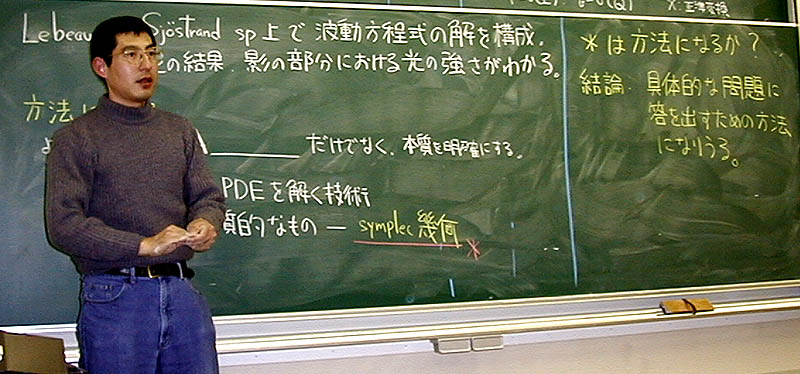 Lebeau Sjöstrand sp上で 波動方程式の解を構成.
の結果、影の部分における光の強さがわかる。
方法に
だけでなく、本質を明確にする。
PDEを解く技術
質的なもの — symplec 幾何
*
X: 正準変換
*は方法になるか?
結論. 具体的な問題に
答を出すための方法
になりうる。